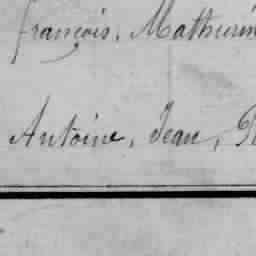 françois, Mathurin
Antoine, Jean,